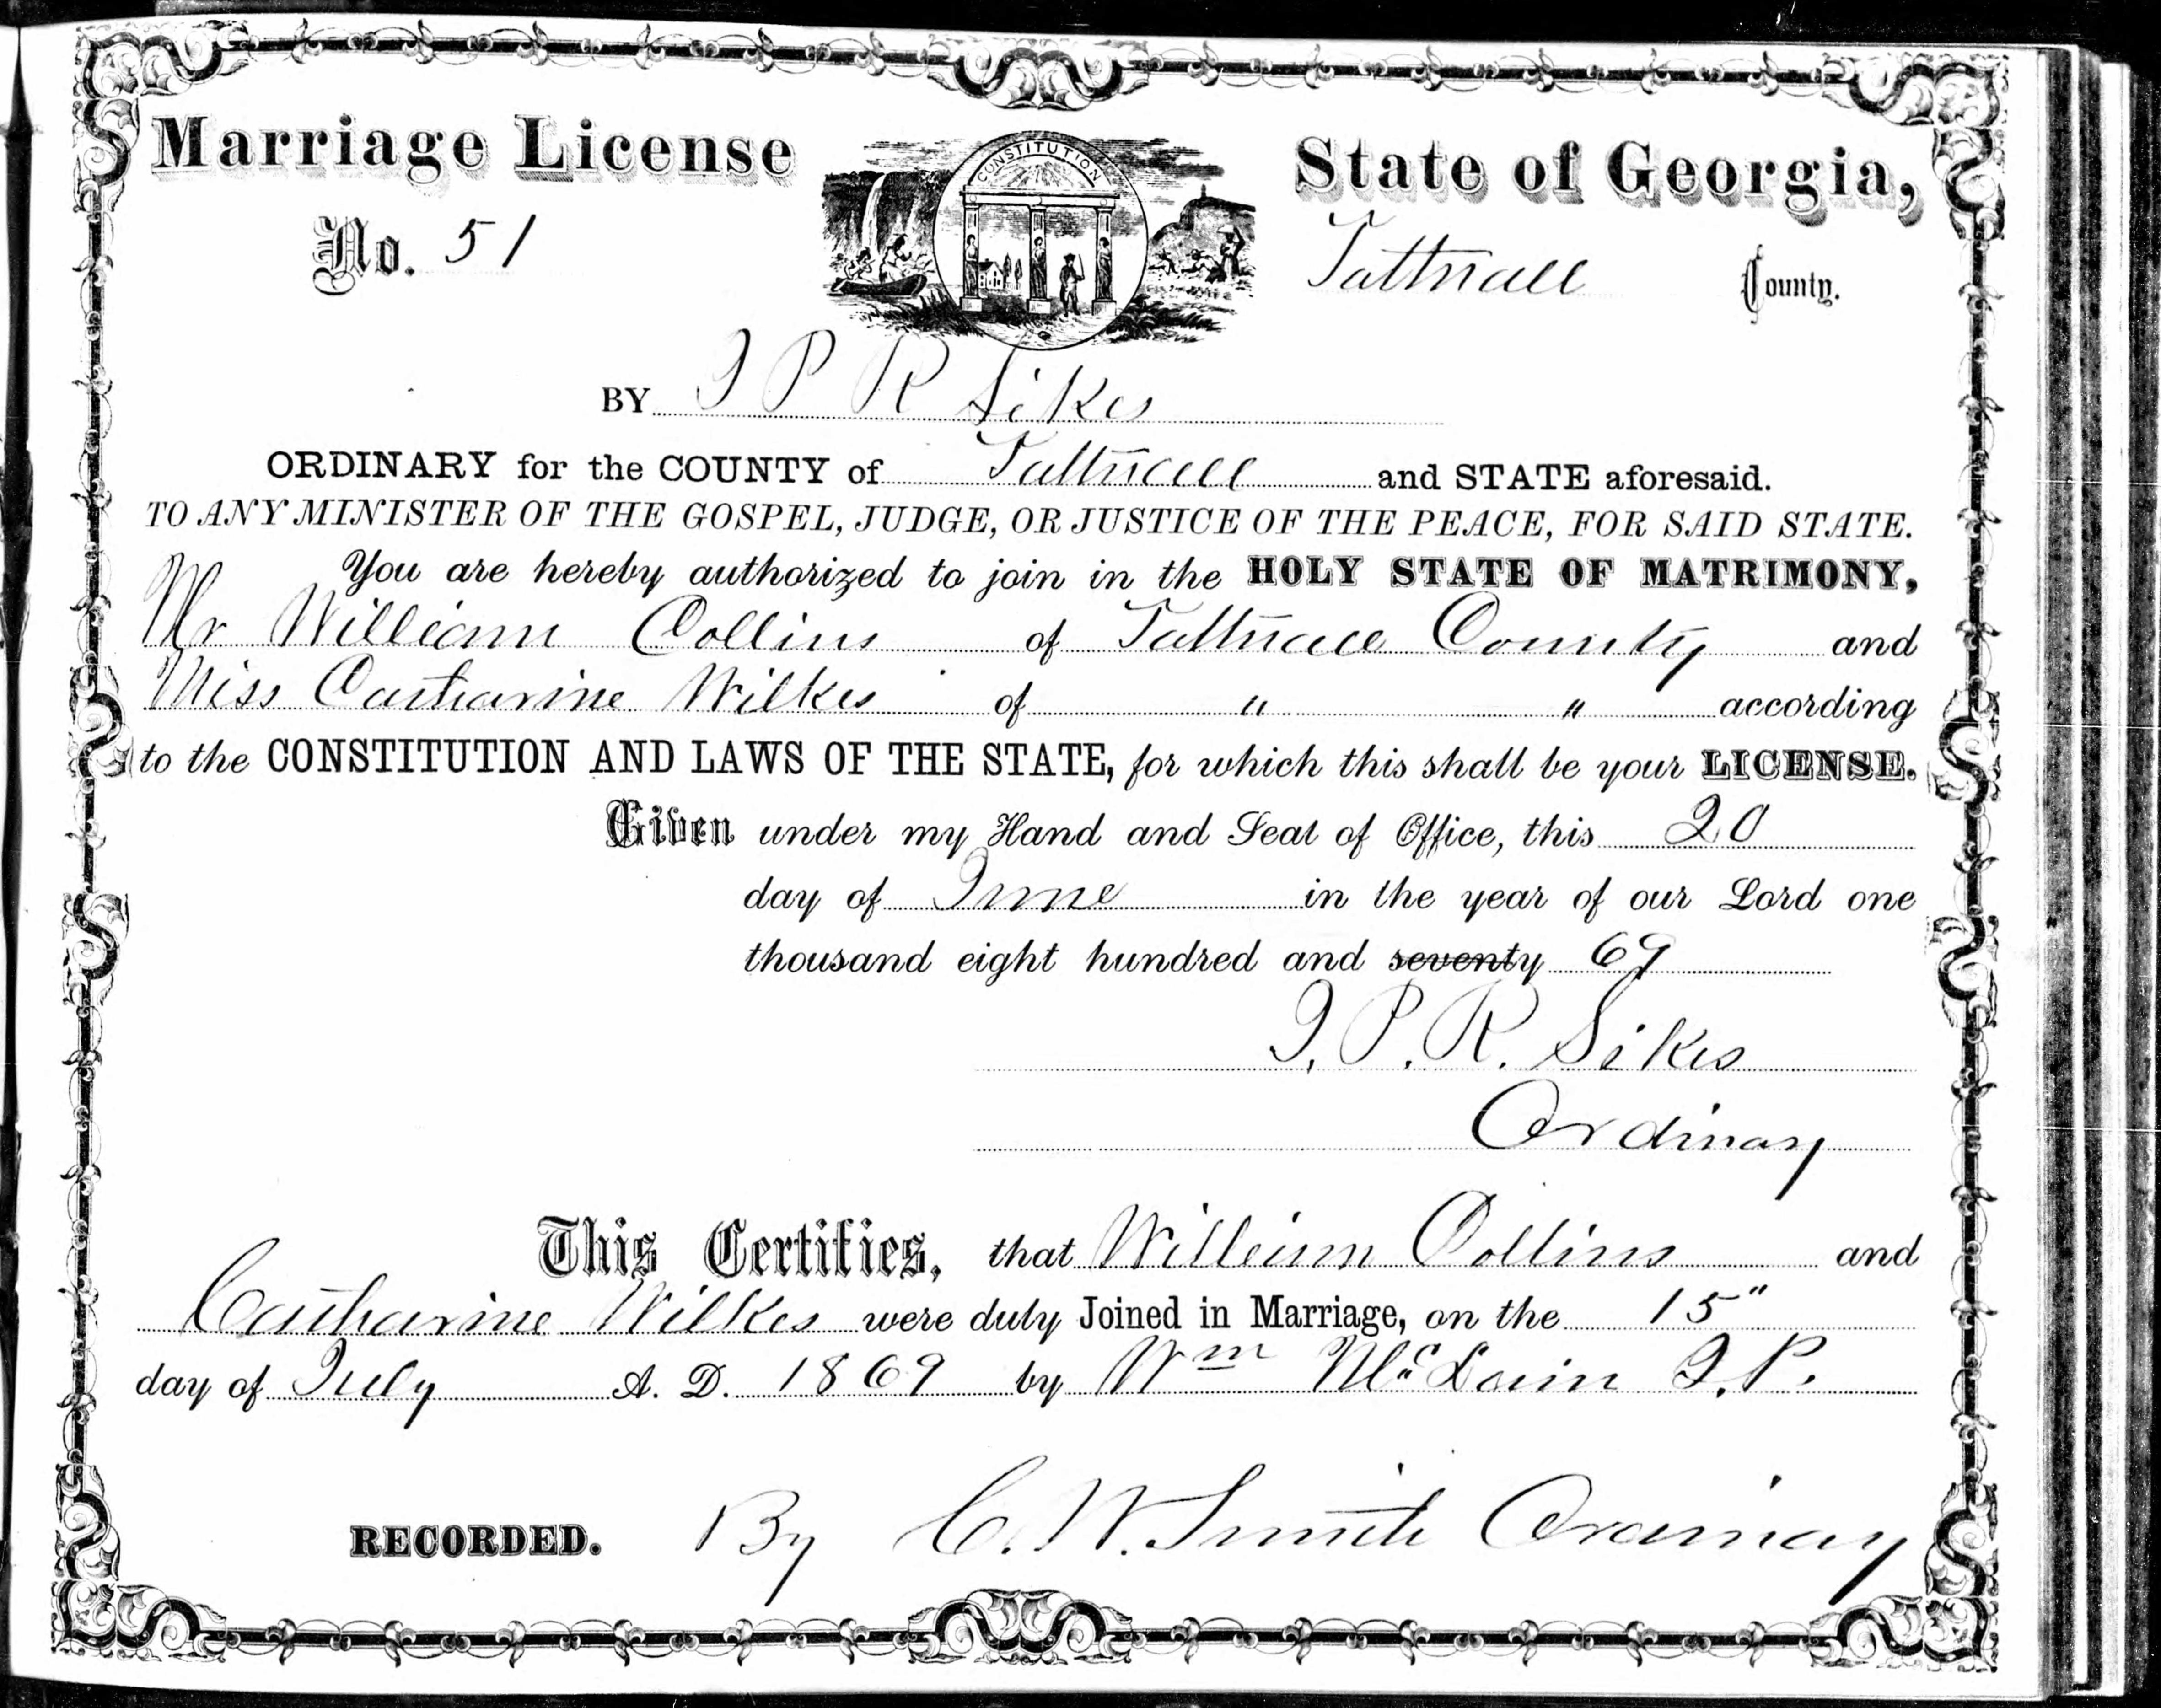 Marriage License
State of Georgia,
No. 51
CONSTITUTION
Tattnall County.
BY J P R Sikes
ORDINARY for the COUNTY of Tattnall and STATE aforesaid.
TO ANY MINISTER OF THE GOSPEL, JUDGE, OR JUSTICE OF THE PEACE, FOR SAID STATE.
You are hereby authorized to join in the HOLY STATE OF MATRIMONY,
Mr William Collins of Tattnall County and
Miss Catharine Wilkes of " " according
to the CONSTITUTION AND LAWS OF THE STATE, for which this shall be your LICENSE.
Given under my Hand and Seal of Office, this 20
day of June in the year of our Lord one
thousand eight hundred and seventy 69
J. P. R. Sikes
Ordinary
This Certifies, that William Collins and
Catharine Wilkes were duly Joined in Marriage, on the 15"
day of July A. D. 1869 by Wm McLain J. P.
RECORDED. By C. W. Smith Ordinary